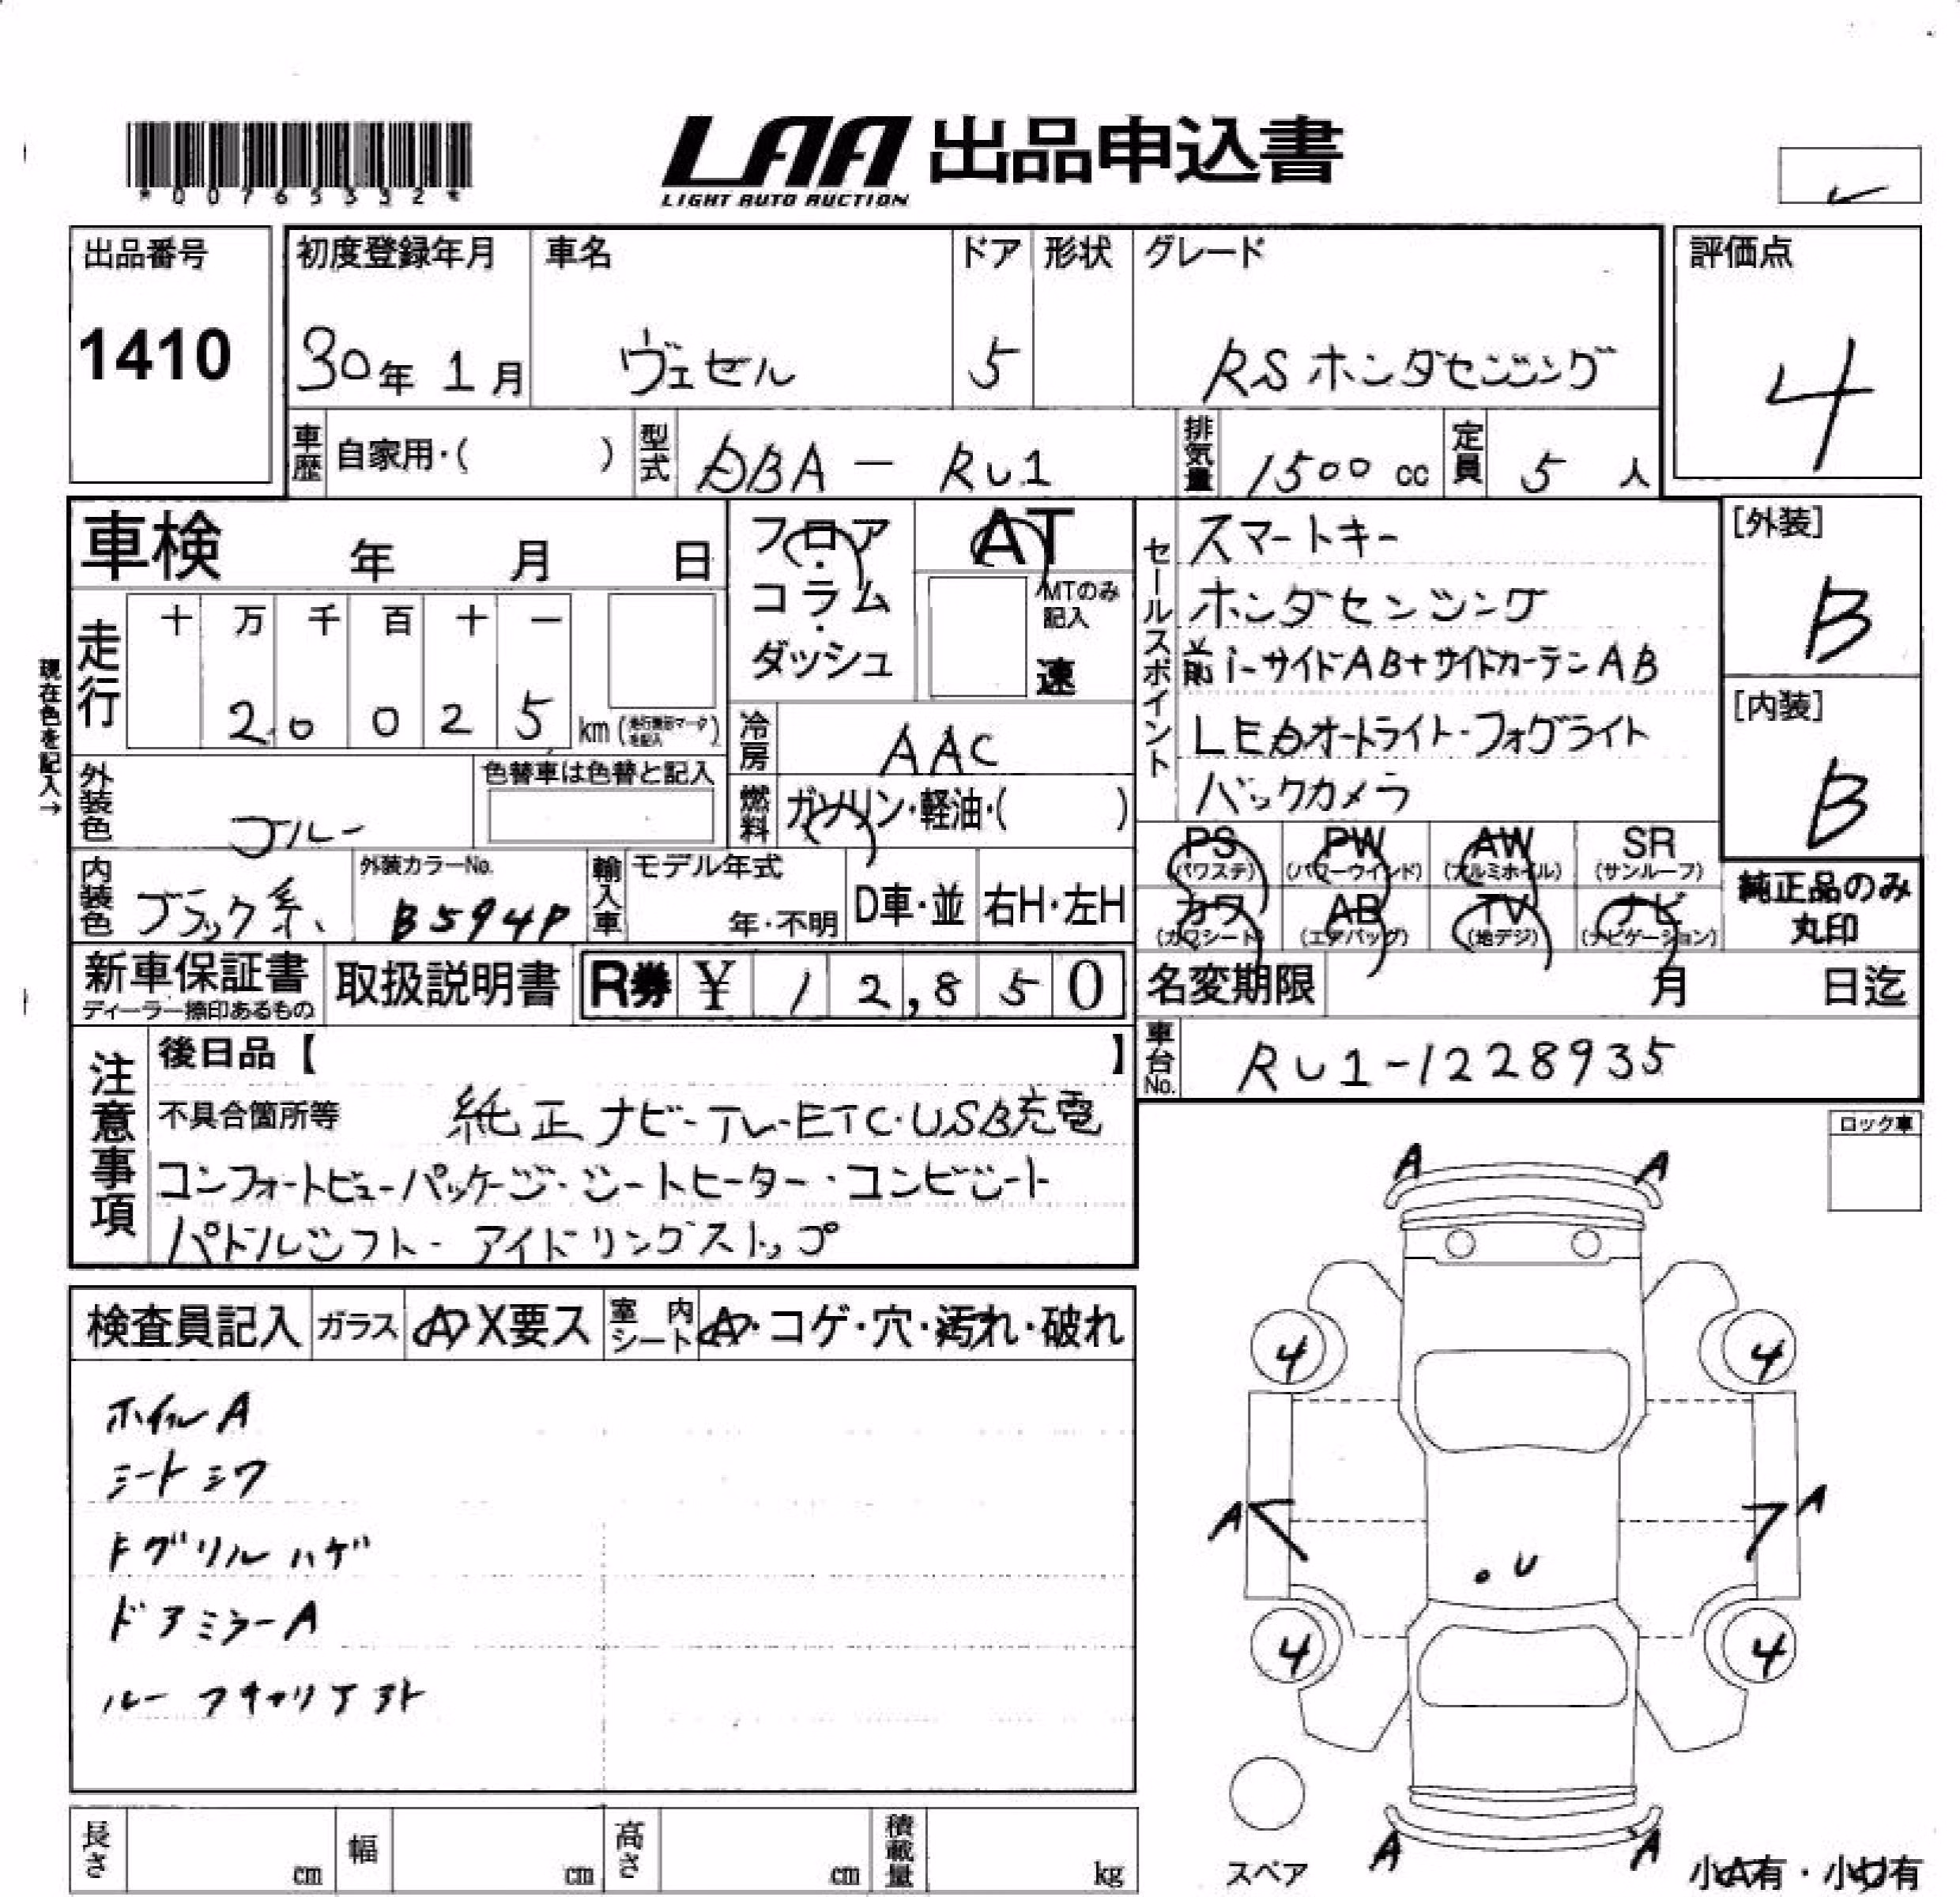 *00765332*
LAA 出品申込書
LIGHT AUTO AUCTION
出品番号
1410
初度登録年月
30年 1月
車名
ヴェゼル
ドア
5
形状
グレード
RSホンダセンシング
評価点
4
車歴 自家用・( )
型式 DBA-RU1
排気量 1500 cc
定員 5 人
車検 年 月 日
フロア・コラム・ダッシュ
AT
MTのみ記入
速
セールスポイント
スマートキー
ホンダセンシング
i-サイドAB+サイドカーテンAB
LEDオートライト・フォグライト
バックカメラ
[外装]
B
[内装]
B
現在色を記入→
走行
十 万 千 百 十 一
2 0 0 2 5
km (走行換距マークを記入)
冷房 AAC
外装色 ブルー
色替車は色替と記入
燃料 ガソリン・軽油・( )
PS (パワステ)
PW (パワーウインド)
AW (アルミホイル)
SR (サンルーフ)
カワ (カワシート)
AB (エアバッグ)
TV (地デジ)
ナビ (ナビゲーション)
純正品のみ丸印
内装色 ブラック系
外装カラーNo.
B594P
輸入車
モデル年式
年・不明
D車・並
右H・左H
新車保証書
ディーラー捺印あるもの
取扱説明書
R券 ¥ 12,850
名変期限 月 日迄
車台No. RU1-1228935
注意事項
後日品【 】
不具合箇所等 純正ナビ-TV-ETC・USB充電
コンフォートビューパッケージ-シートヒーター・コンビシート
パドルシフト-アイドリングストップ
ロック車
検査員記入 ガラス A X要ス 室内シート A・コゲ・穴・汚れ・破れ
ホイルA
シートシワ
Fグリルハゲ
ドアミラーA
A A
4 4
A A
U
4 4
A A
スペア
小A有・小U有
長さ cm 幅 cm 高さ cm 積載量 kg